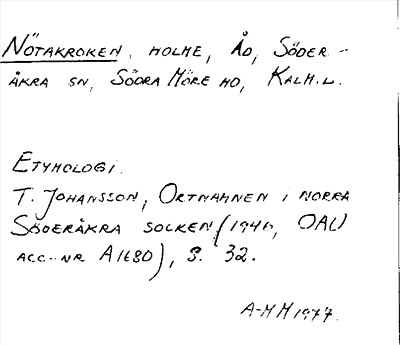 NÖTAKROKEN, HOLME, ÅD, SÖDER-
ÅKRA SN, SÖDRA MÖRE HD, KALM.L.
ETYMOLOGI.
T. JOHANSSON, ORTNAMNEN I NORRA
SÖDERÅKRA SOCKEN (1946, OAU
ACC.-NR A1680), S. 32.
A-M M 1977.